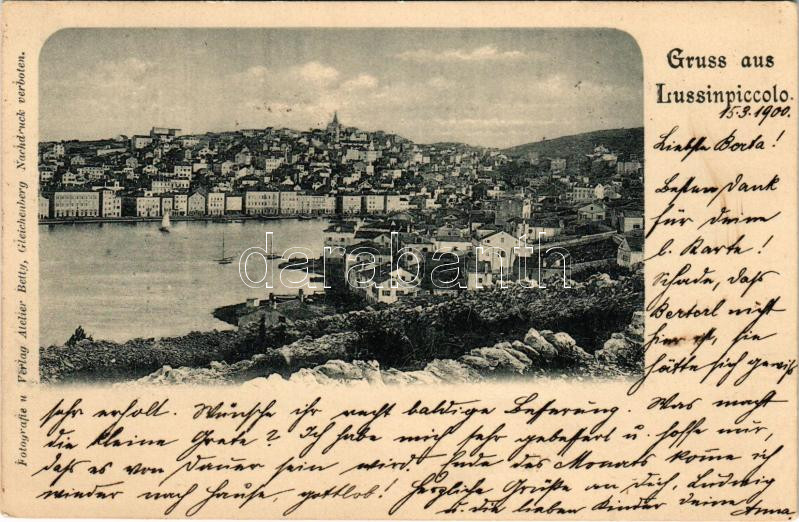 Gruss aus
Lussinpiccolo.
15.3.1900.
Liebste Berta!
Besten Dank
für deine
l. Karte!
Schade, daß
Berterl nicht
hier ist, sie
hätte sich gewiß
sehr erholt. Wünsche ihr recht baldige Besserung. Was macht
die kleine Grete? Ich habe mich sehr gebessert u. hoffe nur,
daß es von Dauer sein wird. Ende des Monats komme ich
wieder nach Hause, gottlob! Herzliche Grüße an dich, Ludwig
u. die lieben Kinder deine Anna.
Fotografie u Verlag Atelier Betty, Gleichenberg Nachdruck verboten.
darabanth